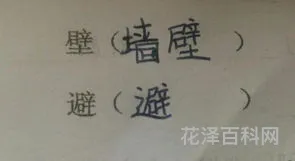 壁（墙壁 ）
避（避 ）
花泽百科网